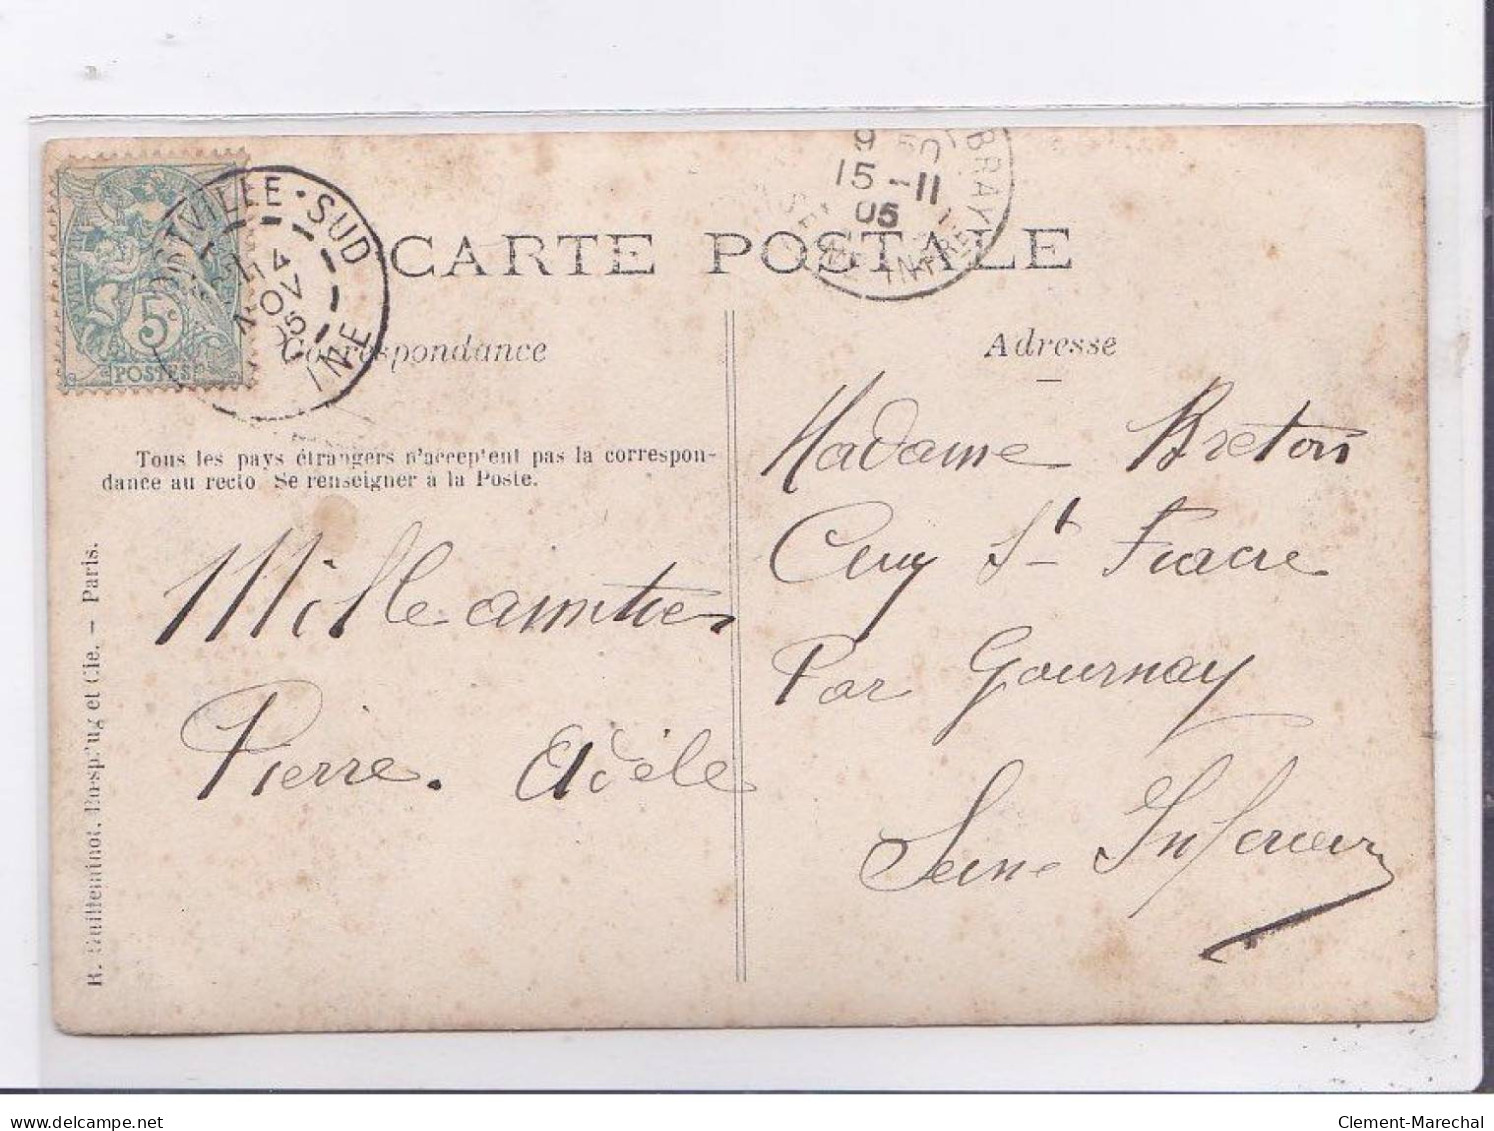 5c
POSTES
SUD
14
NOV
05
INE
9 50
15 -11
05
BRAY
CARTE POSTALE
Correspondance
Adresse
Tous les pays étrangers n'acceptent pas la correspon-
dance au recto Se renseigner à la Poste.
R. Guilleminot, Bœspflug et Cie. — Paris.
Mille amitiés
Pierre. Adèle
Madame Breton
Cuy St Fiacre
Par Gournay
Seine Inférieure
delcampe.net
Clement-Marechal